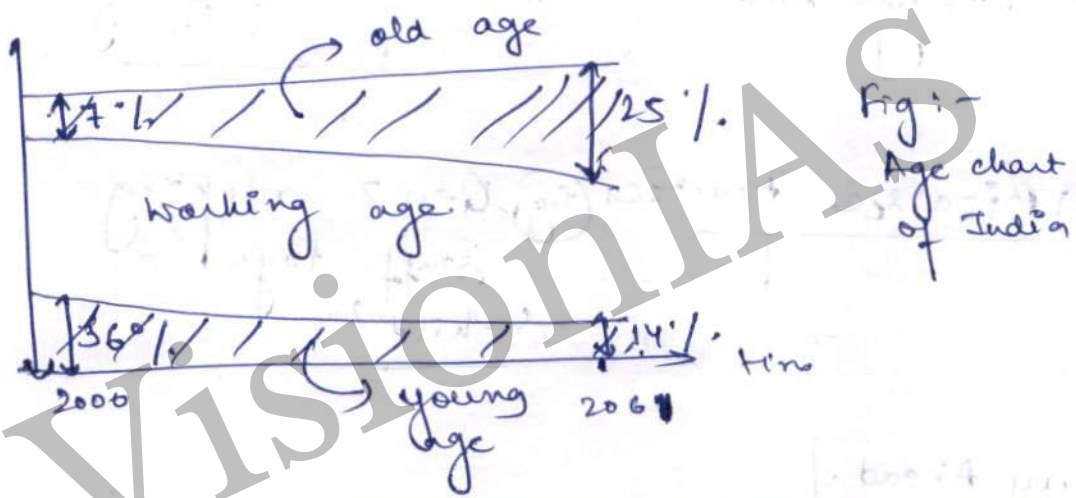 old age
7%
25%.
Fig:-
Age chart
of India
working age
36%
14%.
2000
young
age
VisionIAS